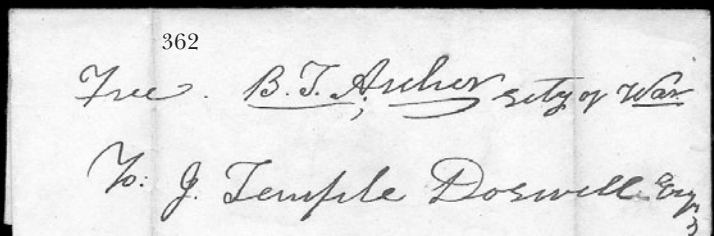 362
Free. B. T. Archer Scty of War
To: J. Temple Doswell Esq